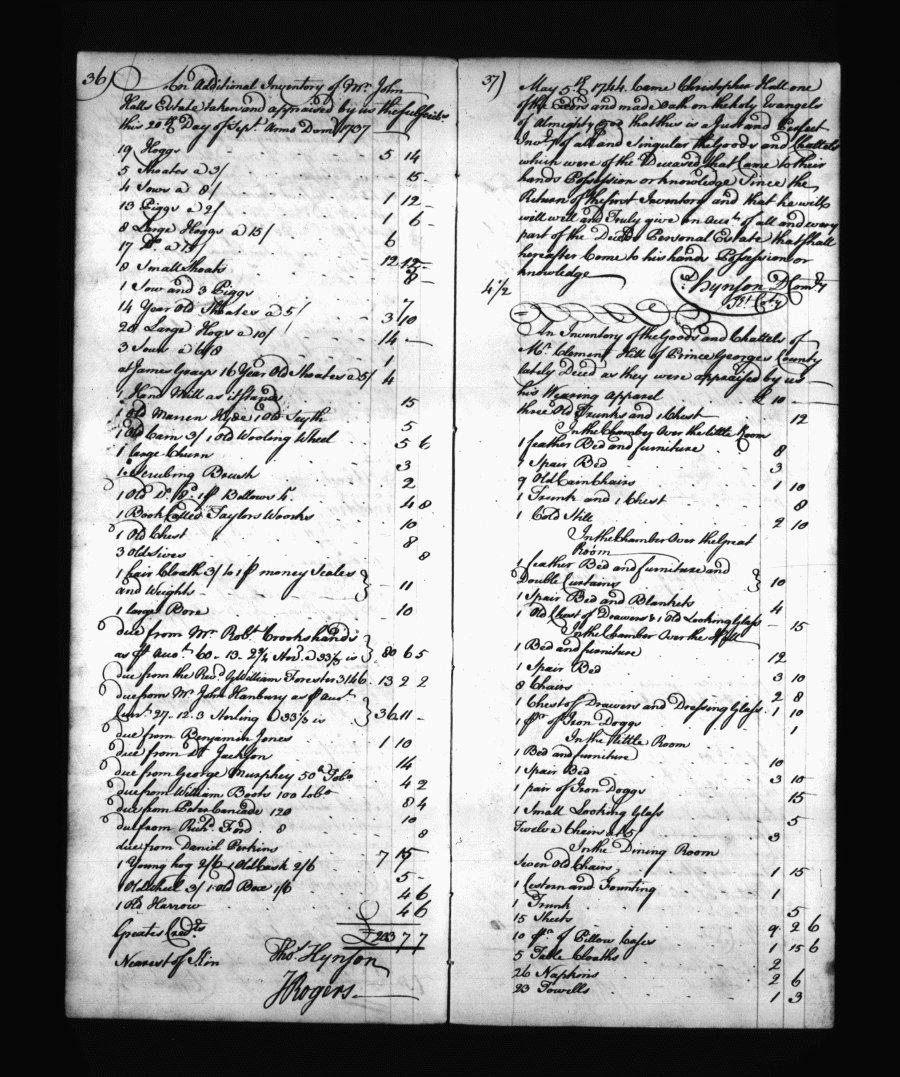 36)
An Additional Inventory of Mr. John
Halls Estate taken and appraised by us the Subscribers
this 20th Day of Sept. Anno Dom 1737
19 Hoggs 5 14
5 Shoates a 3/ 15 -
4 Sows a 8/ 1 12 -
13 Piggs a 2/ 1 6 -
8 Large Hoggs a 15/ 6
17 Do. a 15/ 12 12 -
8 Small Shoats 8 -
1 Sow and 3 Piggs 7
14 Year Old Shoates a 5/ 3 10
28 Large Hogs a 10/ 14 -
3 Sows a 6/8 1
at James Grays 16 Year Old Shoates a 5/ 4
1 Hand Mill as it stands 15
1 old Hyde 1 Old Scyth 5
1 Old 3/ 1 Old Wooling Wheel 5 6
1 large Churn 3
1 Scrubing Brush 2
1 Old Do. 1 pr Bellows 4. 4 8
1 Book Called Taylors Woorks 10
1 Old Chest 8
3 Old Sives 8
1 pair Cloath 3/ to 1 pr money Scales
and Weights 11
1 large Bore 10
due from Mr. Robt. Crookshands
as pr Accot. 60 - 13 - 2 3/4 Ster. a 33 1/3 is 80 6 5
due from the Revd. William Forester 3146 - 13 2 2
due from Mr. John Hanbury as pr Acct.
Curt. 27 - 12 - 3 Sterling a 33 1/3 is 36 11 -
due from Benjamin Jones 1 10
due from Dt. Jackson 14
due from George Murphey 50 lb Tobo 4 2
due from William Boots 100 tobo 8 4
due from Peter 120 10
due from Richd. Ford 8 8
due from Daniel Perkins 7 15
1 Young hog 2/6 1 Old Cask 2/6 5 -
1 Old Wheel 3/ 1 Old Box 1/6 4 6
1 Old Harrow 4 6
Greates Credrs £203 7 7
Nearest of Kin Thos. Hynson
J Rogers
37)
May 5th 1744. Came Christopher Hall one
of the Exors and made Oath on the holy Evangels
of Almighty God that this is a Just and Perfect
Invy. of all and Singular the Goods and Chattels
which were of the Deceased that Came to their
hands Possession or knowledge Since the
Return of the first Inventory and that he will
will well and Truly give an Acct. of all and every
part of the Deceds Personal Estate that shall
hereafter Come to his hands Possession or
knowledge
4 1/2
Hynson D Comry
Kt. Coty
An Inventory of the Goods and Chattels of
Mr. Clement Hill of Prince Georges County
lately Deced as they were appraised by us
his Wearing Apparel £10 -
three Old Trunks and 1 Chest 12
In the Chamber Over the little Room
1 feather Bed and furniture 8
1 Spair Bed 3
9 Old Cain Chairs 1 10
1 Trunk and 1 Chest 8
1 Cold Still 2 10
In the Chamber Over the Great
Room
1 feather Bed and furniture and
Double Curtains 10
1 Spair Bed and Blankets 4
1 Old Chest of Drawers & 1 Old Looking Glass 15
In the Chamber Over the
1 Bed and furniture 12
1 Spair Bed 3 10
8 Chairs 2 8
1 Chest of Drawers and Dressing Glass 1 10
1 pr. of Iron Doggs 1
In the little Room
1 Bed and furniture 10
1 Spair Bed 3 10
1 pair of Iron Doggs 15
1 Small Looking Glass 5
Twelve Chairs at 5/ 3
In the Dining Room
Seven Old Chairs 1 15
1 Cestern and Founting 1
1 Trunk 5
15 Sheets 9 2 6
10 pr. of Pillow Cases 1 15 6
5 Table Cloaths 2
26 Napkins 2 6
23 Towells 1 3